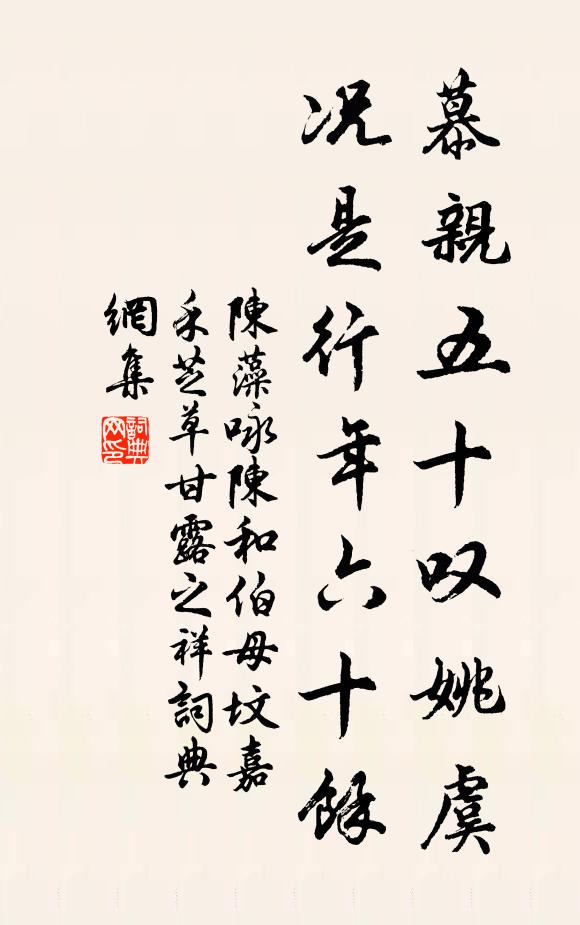 慕親五十叹姚虞
况是行年六十餘
陳藻咏陳和伯母坟嘉
禾芝草甘露之祥詞典
網集
詞典网印